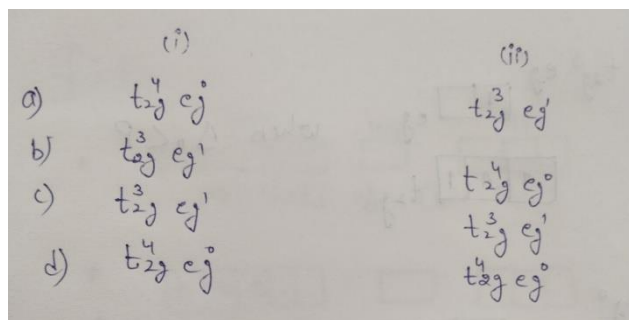 (i) (ii)
a) t₂g⁴ eg⁰ t₂g³ eg¹
b) t₂g³ eg¹ t₂g⁴ eg⁰
c) t₂g³ eg¹ t₂g³ eg¹
d) t₂g⁴ eg⁰ t₂g⁴ eg⁰